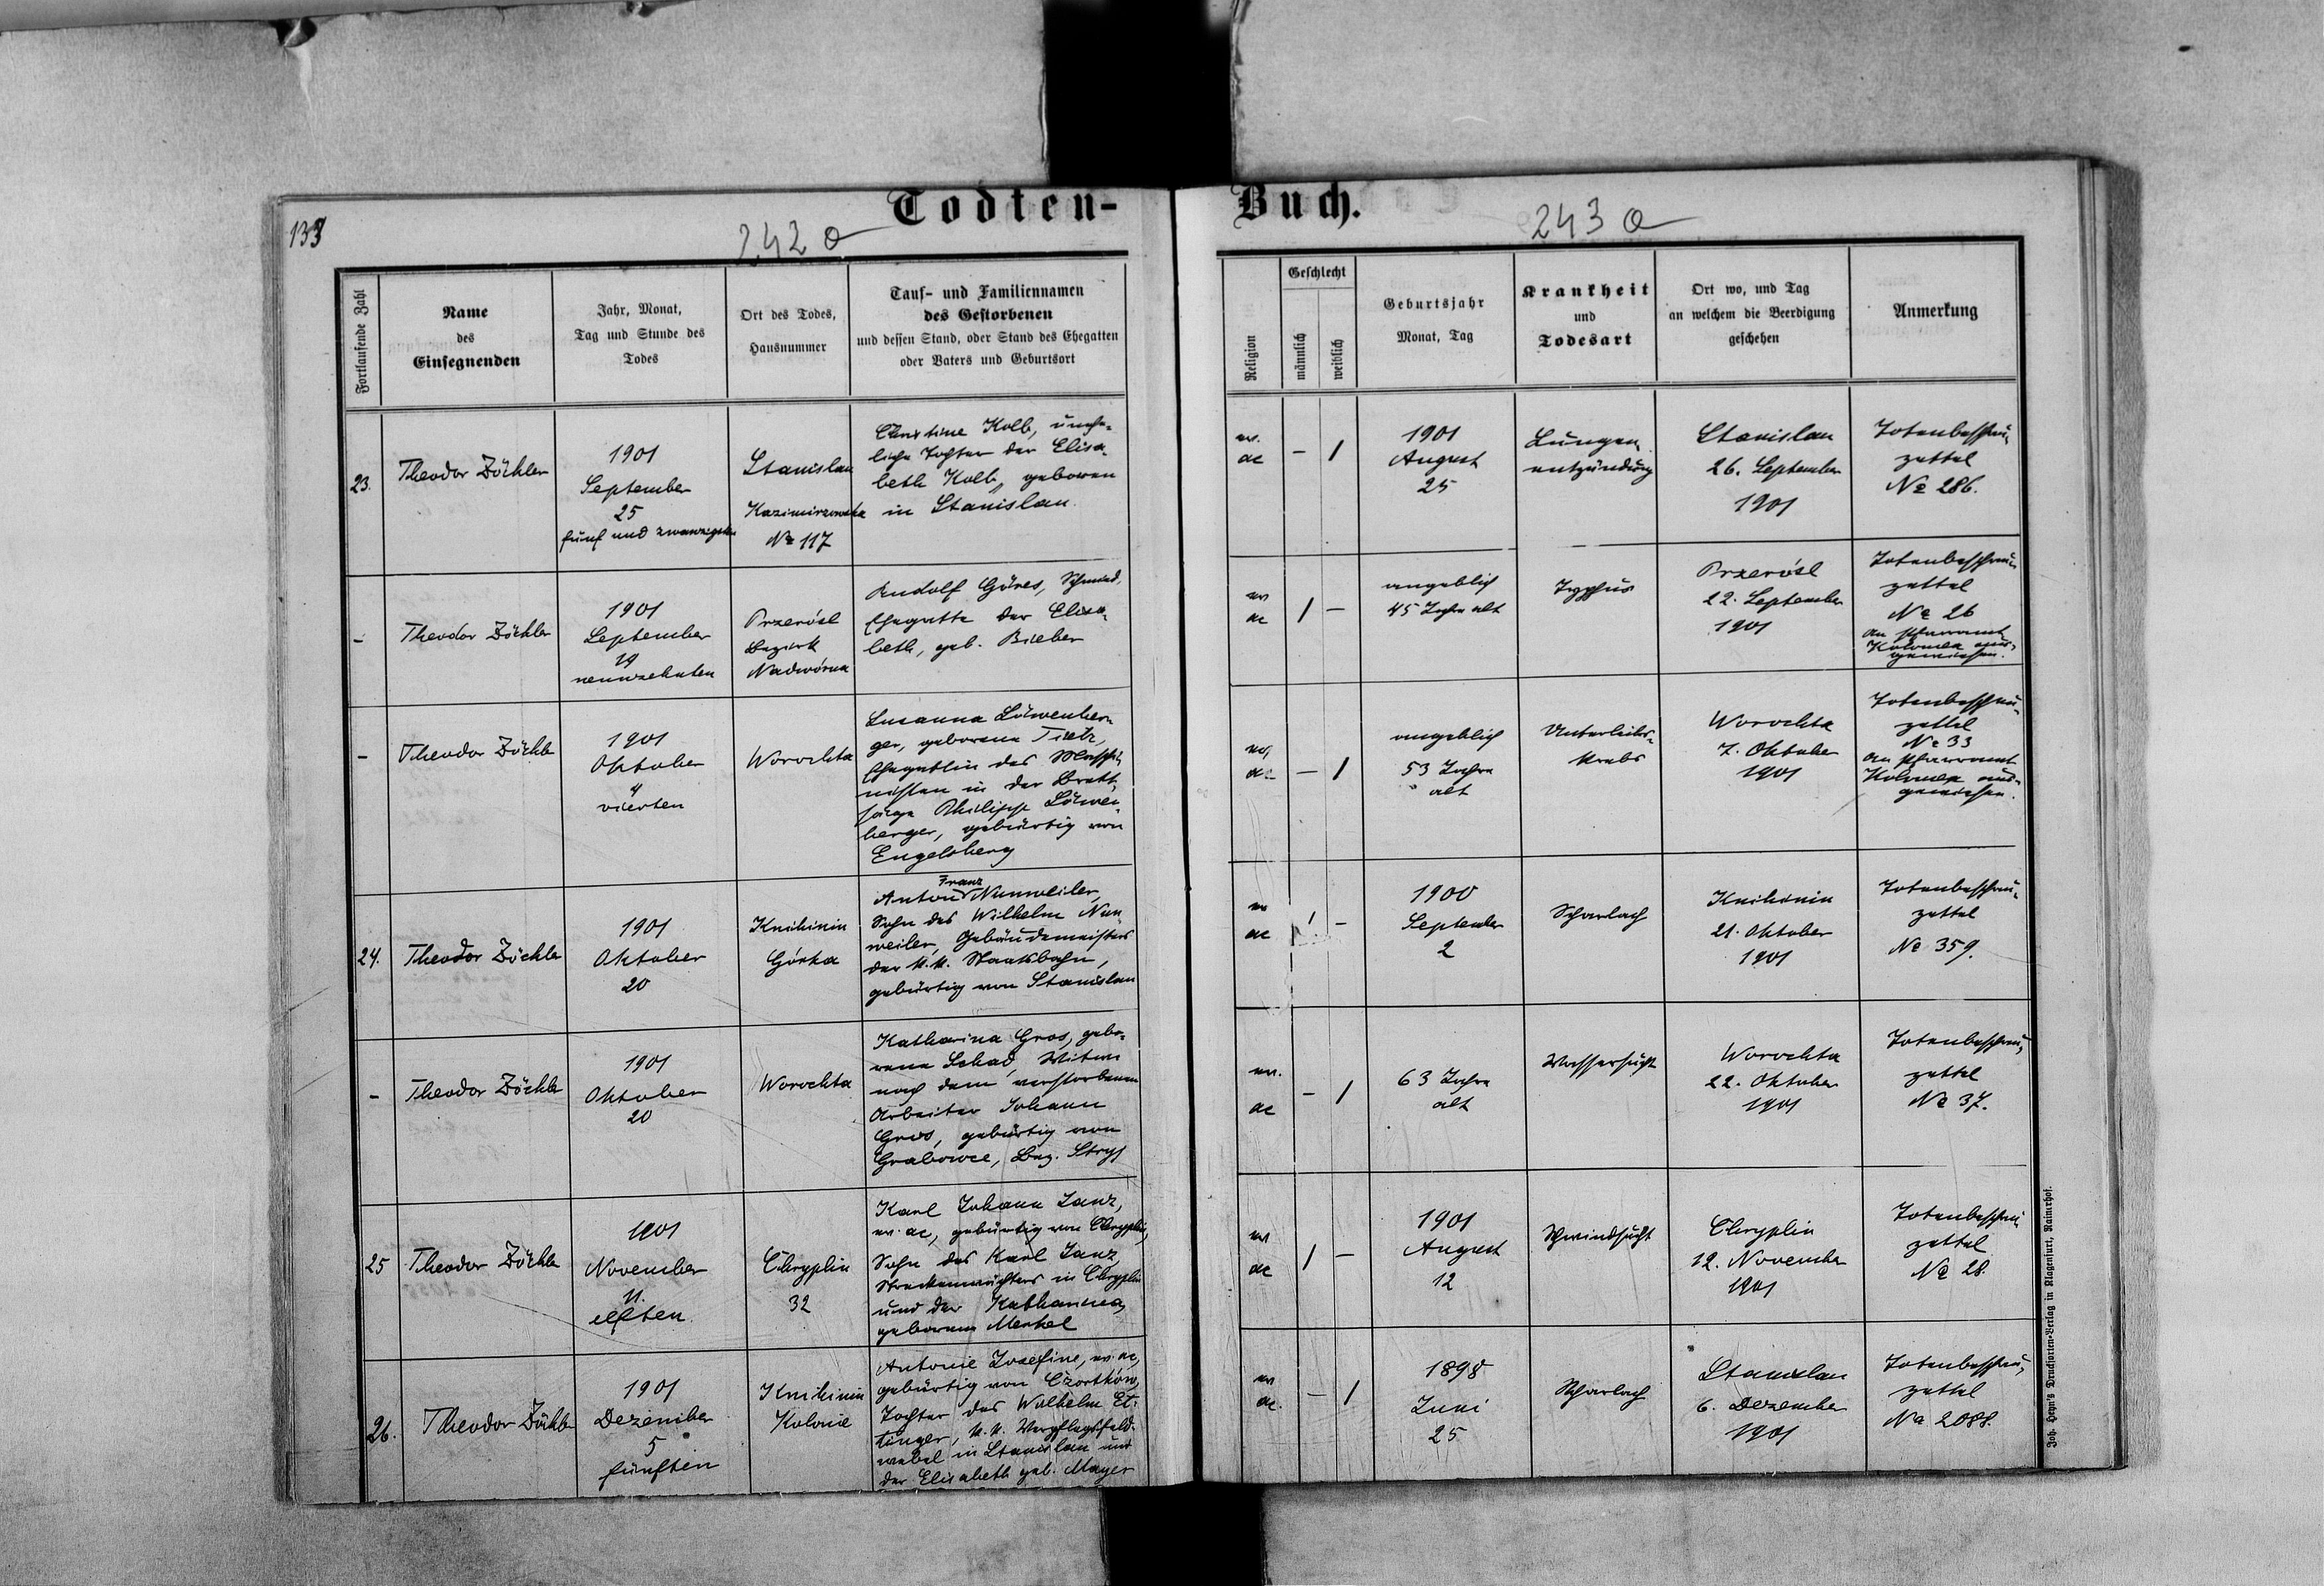 Todten-
Buch.
133
242 a
243 a
Fortlaufende Zahl
Name
des
Einsegnenden
Jahr, Monat,
Tag und Stunde des
Todes
Ort des Todes,
Hausnummer
Tauf- und Familiennamen
des Gestorbenen
und dessen Stand, oder Stand des Ehegatten
oder Vaters und Geburtsort
Religion
Geschlecht
männlich
weiblich
Geburtsjahr
Monat, Tag
Krankheit
und
Todesart
Ort wo, und Tag
an welchem die Beerdigung
geschehen
Anmerkung
23.
Theodor Zöckler
1901
September
25
fünf und zwanzigsten
Stanislau
Kazimirzowska
No 117
Christine Kolb, unehe-
liche Tochter der Elisa-
beth Kolb, geboren
in Stanislau.
ev.
ac
-
1
1901
August
25
Lungen-
entzündung
Stanislau
26. September
1901
Totenbeschau-
zettel
No 286.
-
Theodor Zöckler
1901
September
19
neunzehnten
Przerósl
Bezirk
Nadwórna
Rudolf Göres, Schmied,
Ehegatte der Elisa-
beth, geb. Bieber
ev
ac
1
-
angeblich
45 Jahre alt
Typhus
Przerósl
22. September
1901
Totenbeschau-
zettel
No 26
an Pfarramt
Kolomea aus-
gewiesen.
-
Theodor Zöckler
1901
Oktober
4
vierten
Worochta
Susanna Löwenber-
ger, geborene
Ehegattin des Maschi-
nisten in der Brett-
säge Philipp Löwen-
berger, gebürtig von
Engelsberg
ev.
ac
-
1
angeblich
53 Jahre
alt
Unterleibs-
krebs
Worochta
7. Oktober
1901
Totenbeschau-
zettel
No 33
an Pfarramt
Kolomea aus-
gewiesen.
24.
Theodor Zöckler
1901
Oktober
20
Knihinin
Górka
Franz
Anton Nunweiler,
Sohn des Wilhelm Nun-
weiler, Gebäudemeisters
der k.k. Staatsbahn,
gebürtig von Stanislau
ev
ac
1
-
1900
September
2
Scharlach
Knihinin
21. Oktober
1901
Totenbeschau-
zettel
No 359.
-
Theodor Zöckler
1901
Oktober
20
Worochta
Katharina Gros, gebo-
rene Schad, Witwe
nach dem verstorbenen
Arbeiter Johann
Gros, gebürtig von
Grabowce, Bez. Stryj
ev.
ac
-
1
63 Jahre
alt
Wassersucht
Worochta
22. Oktober
1901
Totenbeschau-
zettel
No 37.
25
Theodor Zöckler
1901
November
11.
elften.
Chryplin
32
Karl Johann Janz,
ev. ac, gebürtig von Chryplin,
Sohn des Karl Janz,
Streckenwächters in Chryplin
und der Katharina,
geborene Merkel
ev
ac
1
-
1901
August
12
Schwindsucht
Chryplin
12. November
1901
Totenbeschau-
zettel
No 28.
26.
Theodor Zöckler
1901
Dezember
5
fünften
Knihinin
Kolonie
Antonie Josefine, ev. ac,
gebürtig von Czortków,
Tochter des Wilhelm Et-
tinger, k.k. Verpflegsfeld-
webel in Stanislau und
der Elisabeth geb. Mayer
ev
ac.
-
1
1898
Juni
25
Scharlach
Stanislau
6. Dezember
1901
Totenbeschau-
zettel
No 2088.
Joh. Heyn's Drucksorten-Verlag in Klagenfurt, Rainerhof.